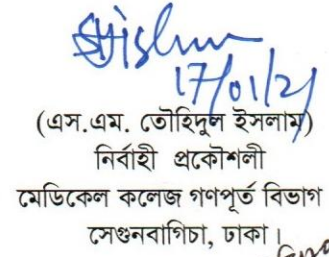 17/01/21
(এস.এম. তৌহিদুল ইসলাম)
নির্বাহী প্রকৌশলী
মেডিকেল কলেজ গণপূর্ত বিভাগ
সেগুনবাগিচা, ঢাকা।